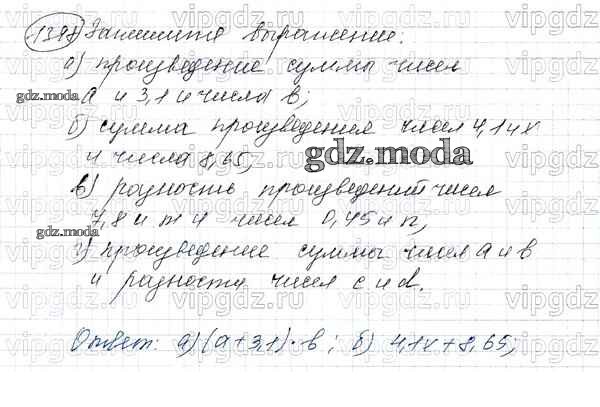 1398 Запишите выражение.
а) произведение суммы чисел
а и 3,1 и числа в;
б) сумма произведения чисел 4,1 и х
и числа 8,65;
в) разность произведений чисел
7,8 и m и чисел 0,45 и n,
г) произведение суммы чисел а и в
и разности чисел с и d.
Ответ: а) (а+3,1)·в; б) 4,1х+8,65;
gdz.moda
gdz.moda
gdz.moda
vipgdz.ru